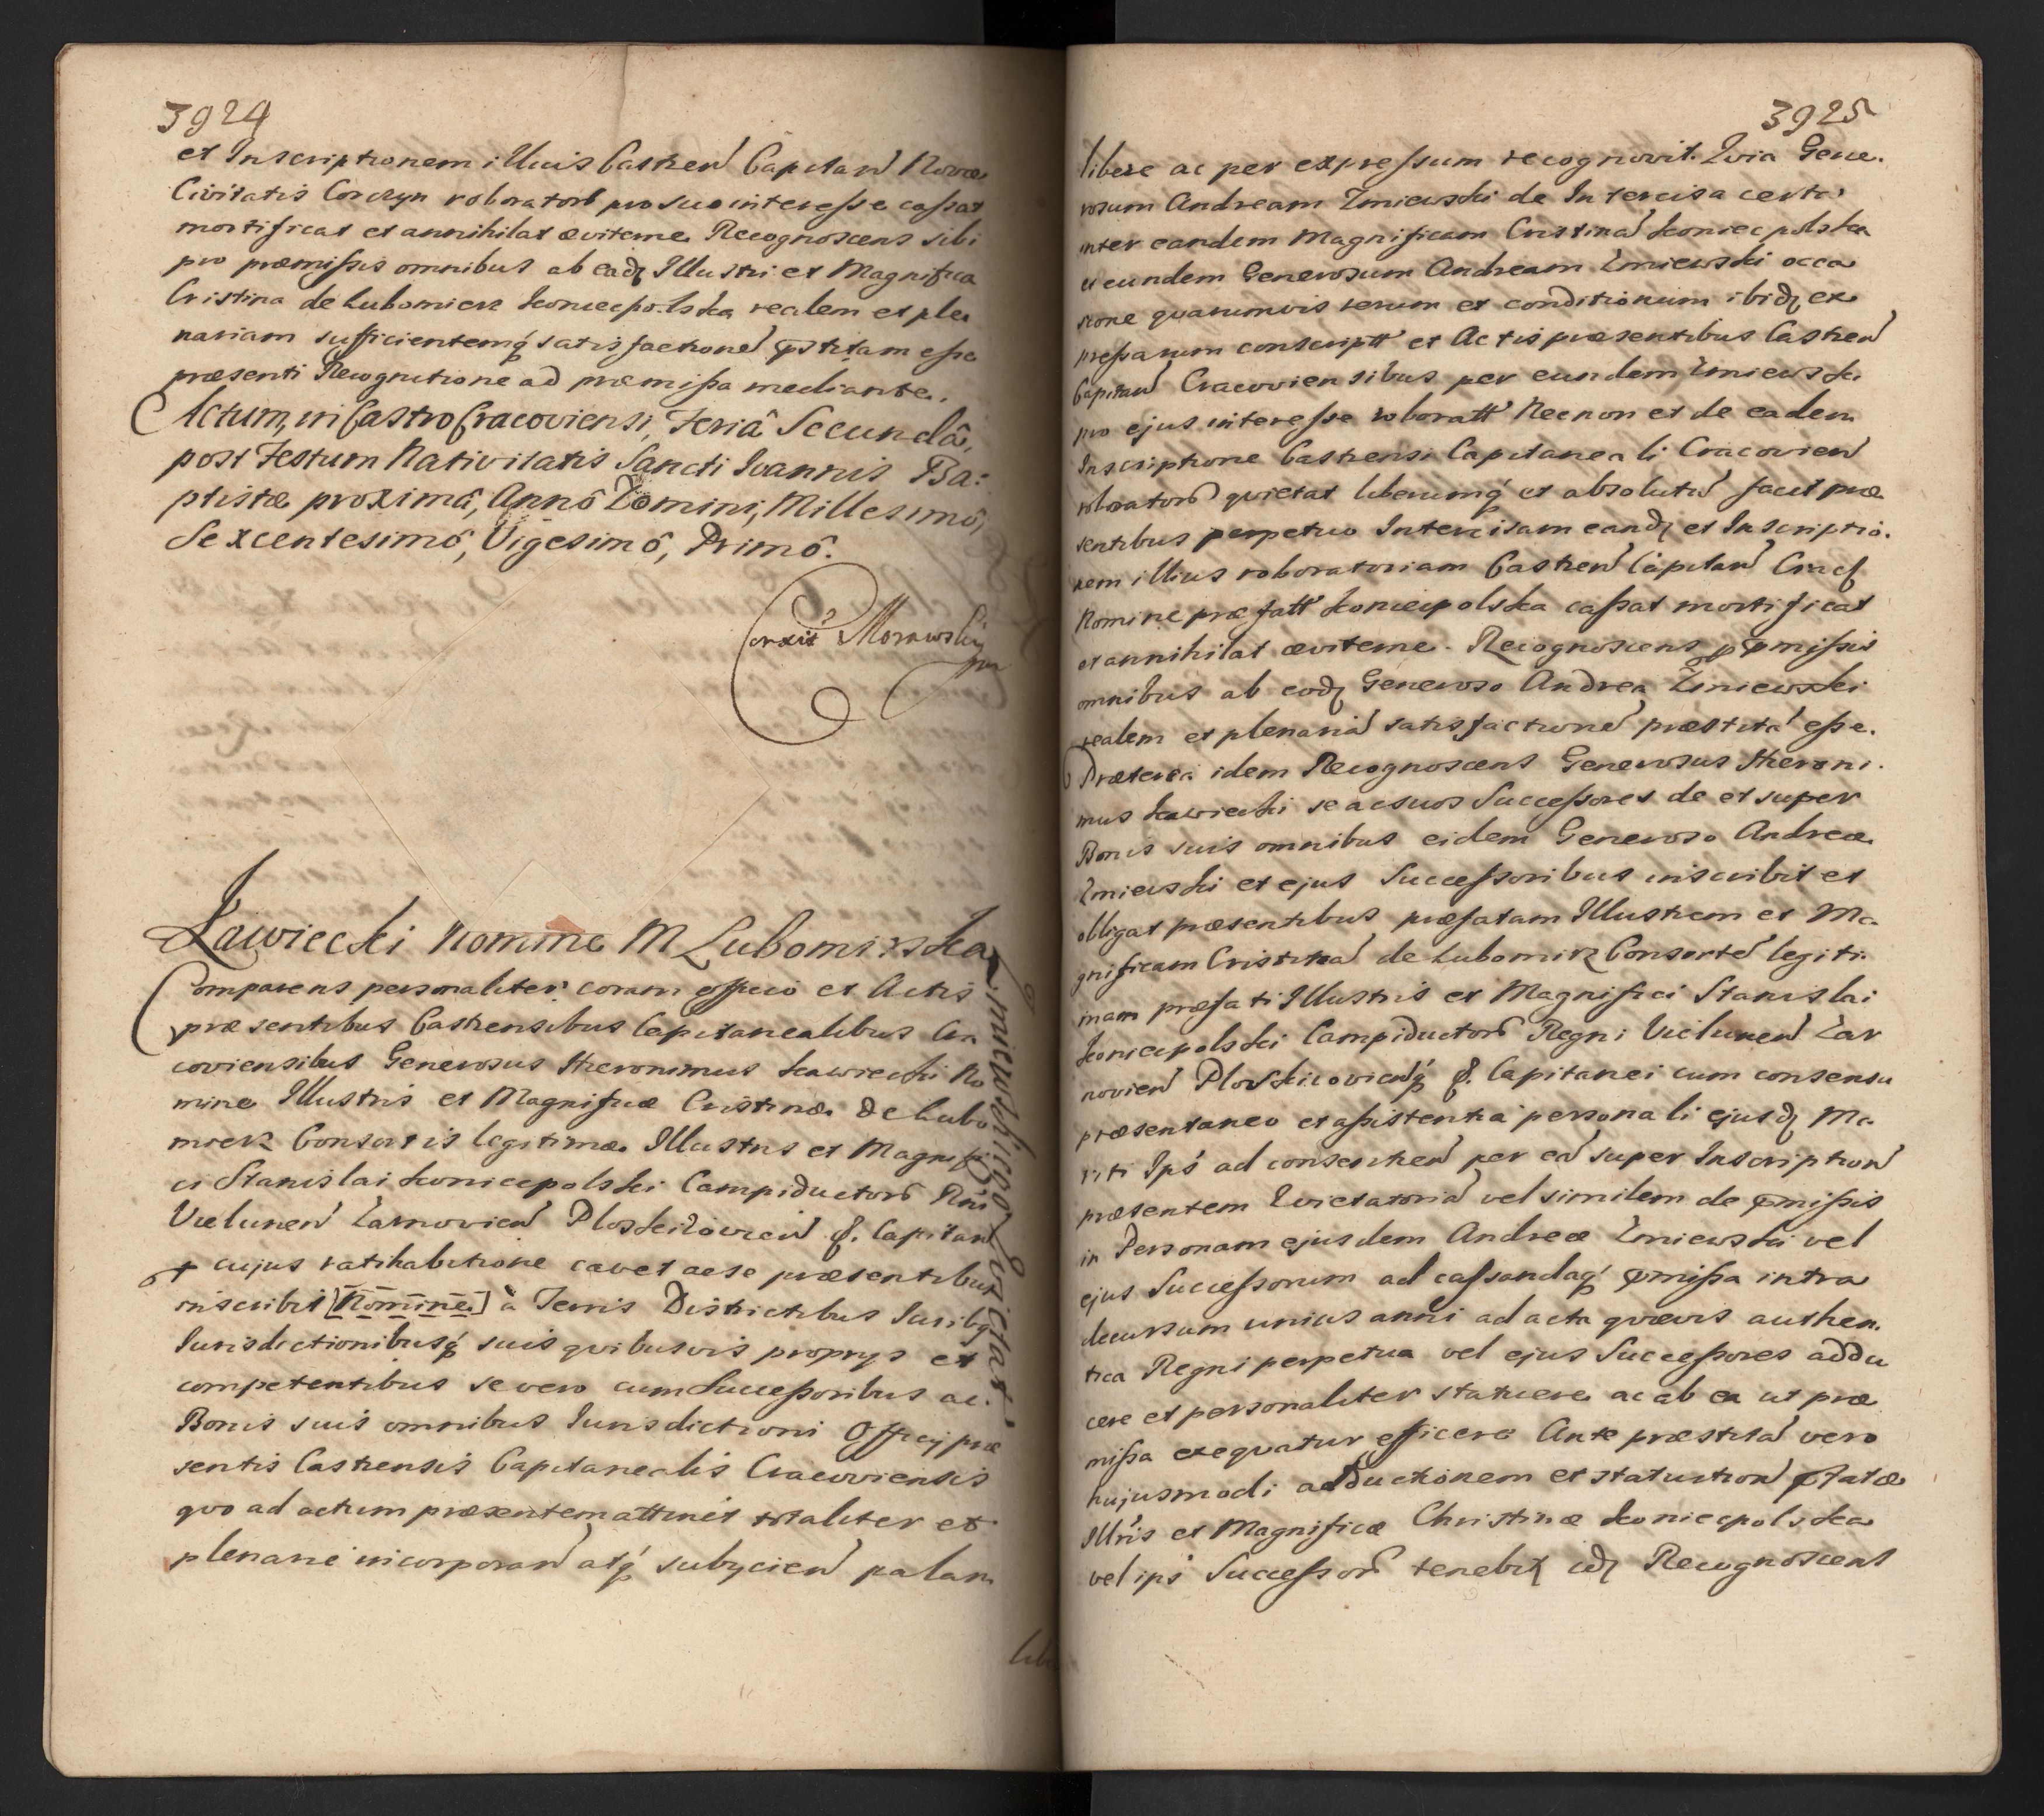 3924
et Inscriptionem illius Castren Capitan Novæ
Civitatis Corczyn roborator pro suo interesse cassat
mortificat et annihilat æviterne Recognoscens sibi
pro præmissis omnibus ab eadq Illustri et Magnifica
Cristina de Lubomierz Koniecpolska realem et ple
nariam sufficientemq satisfactione pstitam esse
præsenti Recognitione ad præmissa mediante.
Actum, in Castro Cracoviensi, Feriâ Secundâ,
post Festum Nativitatis Sancti Ioannis Ba:
ptistæ proximâ, Annô Domini, Millesimô,
Sexcentesimô, Vigesimô, Primô.
Corxit Morawski
mp
Kawiecki Nomine M Lubomirska
Zmiewskiego Qvietat
Comparens personaliter coram officio et Actis
præsentibus Castrensibus Capitanealibus Cra
coviensibus Generosus Hieronimus Kawiecki No
mine Illustris et Magnificæ Cristinæ de Lubo
mierz Consortis legitimæ Illustris et Magnifi
ci Stanislai Koniecpolski Campiductors Rni
Vielunen Zarnovien Ploskirovien &. Capitan
+ cujus ratihabitione cavet ac se præsentibus
inscribit [Nomine] à Terris Districtibus Iuribq
Iurisdictionibusq suis qvibusvis proprys et
competentibus se vero cum Successoribus ac
Bonis suis omnibus Iurisdictioni Officy præ
sentis Castrensis Capitanealis Cracoviensis
qvo ad actum præsentem attinet totaliter et
plenarie incorporan atq subycien palam
libe
3925
libere ac per expressum recognovit. Qvia Gene.
rosum Andream Zmiewski de Intercisa certa
inter eandem Magnificam Cristina Koniecpolska
et eundem Generosum Andream Zmiewski occa
sione qvarumvis rerum et conditionum ibidq ex
pressarum conscriptt et Actis præsentibus Castren
Capitan Cracoviensibus per eundem Zmiewski
pro ejus interesse roboratt Necnon et de eadem
Inscriptione Castrensi Capitaneali Cracovien
roborators qvietat liberumq et absolutu facit præ
sentibus perpetuo Intercisam eandq et Inscriptio.
nem illius roboratoriam Castren Capitan Cracq
Nomine præfatt Koniecpolska cassat mortificat
et annihilat æviterne. Recognoscens p pmissis
omnibus ab eodq Generoso Andrea Zmiewski
realem et plenaria satisfactione præstita esse.
Præterea idem Recognoscens Generosus Hieroni.
mus Kawiecki se ac suos Successores de et super
Bonis suis omnibus eidem Generoso Andreæ
Zmiewski et ejus Successoribus inscribit et
obligat præsentibus præfatam Illustrem et Ma.
gnificam Cristina de Lubomirz Consorte legiti.
mam præfati Illustris et Magnifici Stanislai
Koniecpolski Campiductors Regni Vielunen Zar
novien Ploskirovienq &. Capitanei cum consensu
præsentaneo et assistentia personali ejusdq Ma
riti Ips ad consentien per ea super Inscription
præsentem Qvietatoria vel similem de pmissis
in Personam ejusdem Andreæ Zmiewski vel
ejus Successorum ad cassandaq pmissa intra
decursum unius anni ad acta qvævis authen.
tica Regni perpetua vel ejus Successores addu
cere et personaliter statuere ac ab ea ut præ
missa exeqvatur efficere Ante præstita vero
hujusmodi adductionem et statution pfatæ
Illris et Magnificæ Christinæ Koniecpolska
vel ips Successor tenebit idq Recognoscens